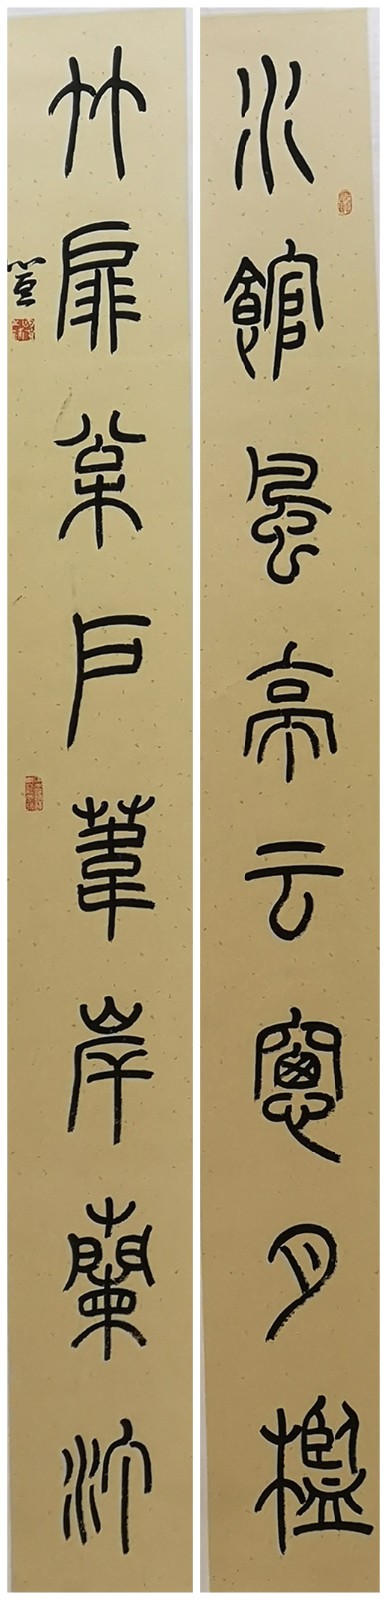 水館風亭云窻月檻
竹扉葉戶葦岸蘭汀